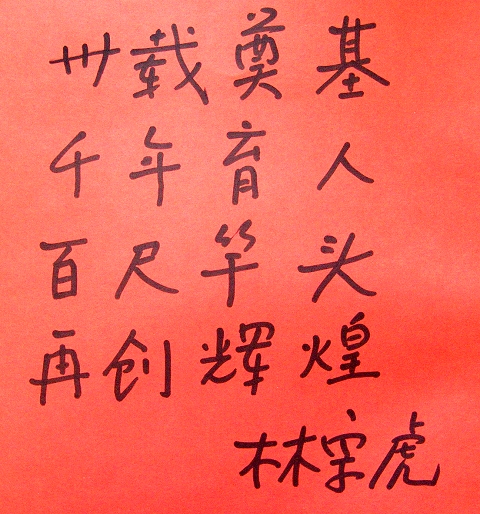 卅载奠基
千年育人
百尺竿头
再创辉煌
林宗虎